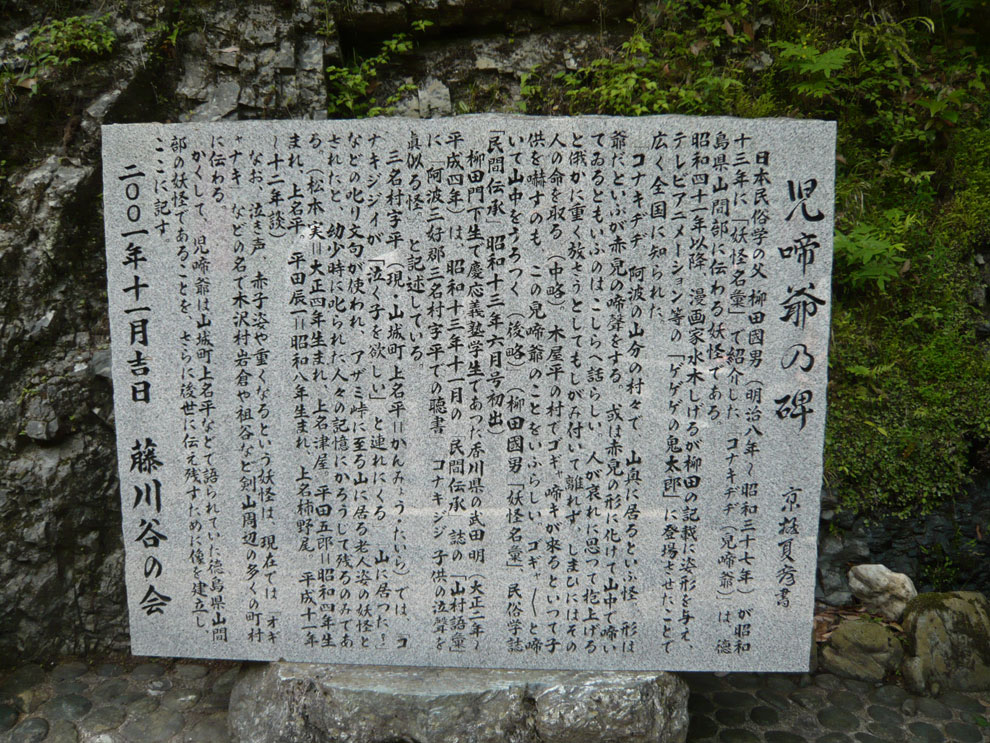 児啼爺の碑
京極夏彦書
日本民俗学の父 柳田國男(明治八年~昭和三十七年)が昭和
十三年に「妖怪名彙」で紹介した「コナキヂヂ(児啼爺)」は、徳
島県山間部に伝わる妖怪である。
昭和四十一年以降、漫画家水木しげるが柳田の記載に姿形を与え、
テレビアニメーション等の「ゲゲゲの鬼太郎」に登場させたことで
広く全国に知られた。
コナキヂヂ 阿波の山分の村々で、山奥に居るといふ怪。形は
爺だといふが赤児の啼声をする。或は赤児の形に化けて山中で啼い
てゐるともいふのはこしらへ話らしい。人が哀れに思つて抱上げる
と俄かに重く放さうとしてもしがみ付いて離れず、しまひにはその
人の命を取る(中略)。木屋平の村でゴギャ啼きが来るといつて子
供を嚇すのも、この児啼爺のことをいふらしい。ゴギャーゝと啼
いて山中をうろつく(後略)(柳田國男「妖怪名彙」民俗学誌
「民間伝承」昭和十三年六月号初出)
柳田門下生で慶応義塾学生であった香川県の武田明(大正二年~
平成四年)は、昭和十三年十一月の「民間伝承」誌の「山村語彙」
に「阿波三好郡三名村字平での聴書 コナキジジ 子供の泣聲を
眞似る怪。」と記述している。
三名村字平(現・山城町上名平=かんみょう・たいら)では、コ
ナキジジイが「泣く子を欲しい」と連れにくる 山に居った!」
などの叱り文句が使われ、アザミ峠に至る山に居る老人姿の妖怪と
されたと、幼少時に叱られた人々の記憶にかろうじて残るのみであ
る。(松本 実=大正四年生まれ、上名津屋。平田五郎=昭和四年生
まれ、上名平。平田辰一=昭和八年生まれ、上名柿野尾 平成十一年
~十二年談)
なお、泣き声、赤子姿や重くなるという妖怪は、現在では「オギ
ャナキ」などの名で木沢村岩倉や祖谷など剣山周辺の多くの町村
に伝わる。
かくして、児啼爺は山城町上名平などで語られていた徳島県山間
部の妖怪であることを、さらに後世に伝え残すために像を建立し、
ここに記す。
二〇〇一年十一月吉日 藤川谷の会